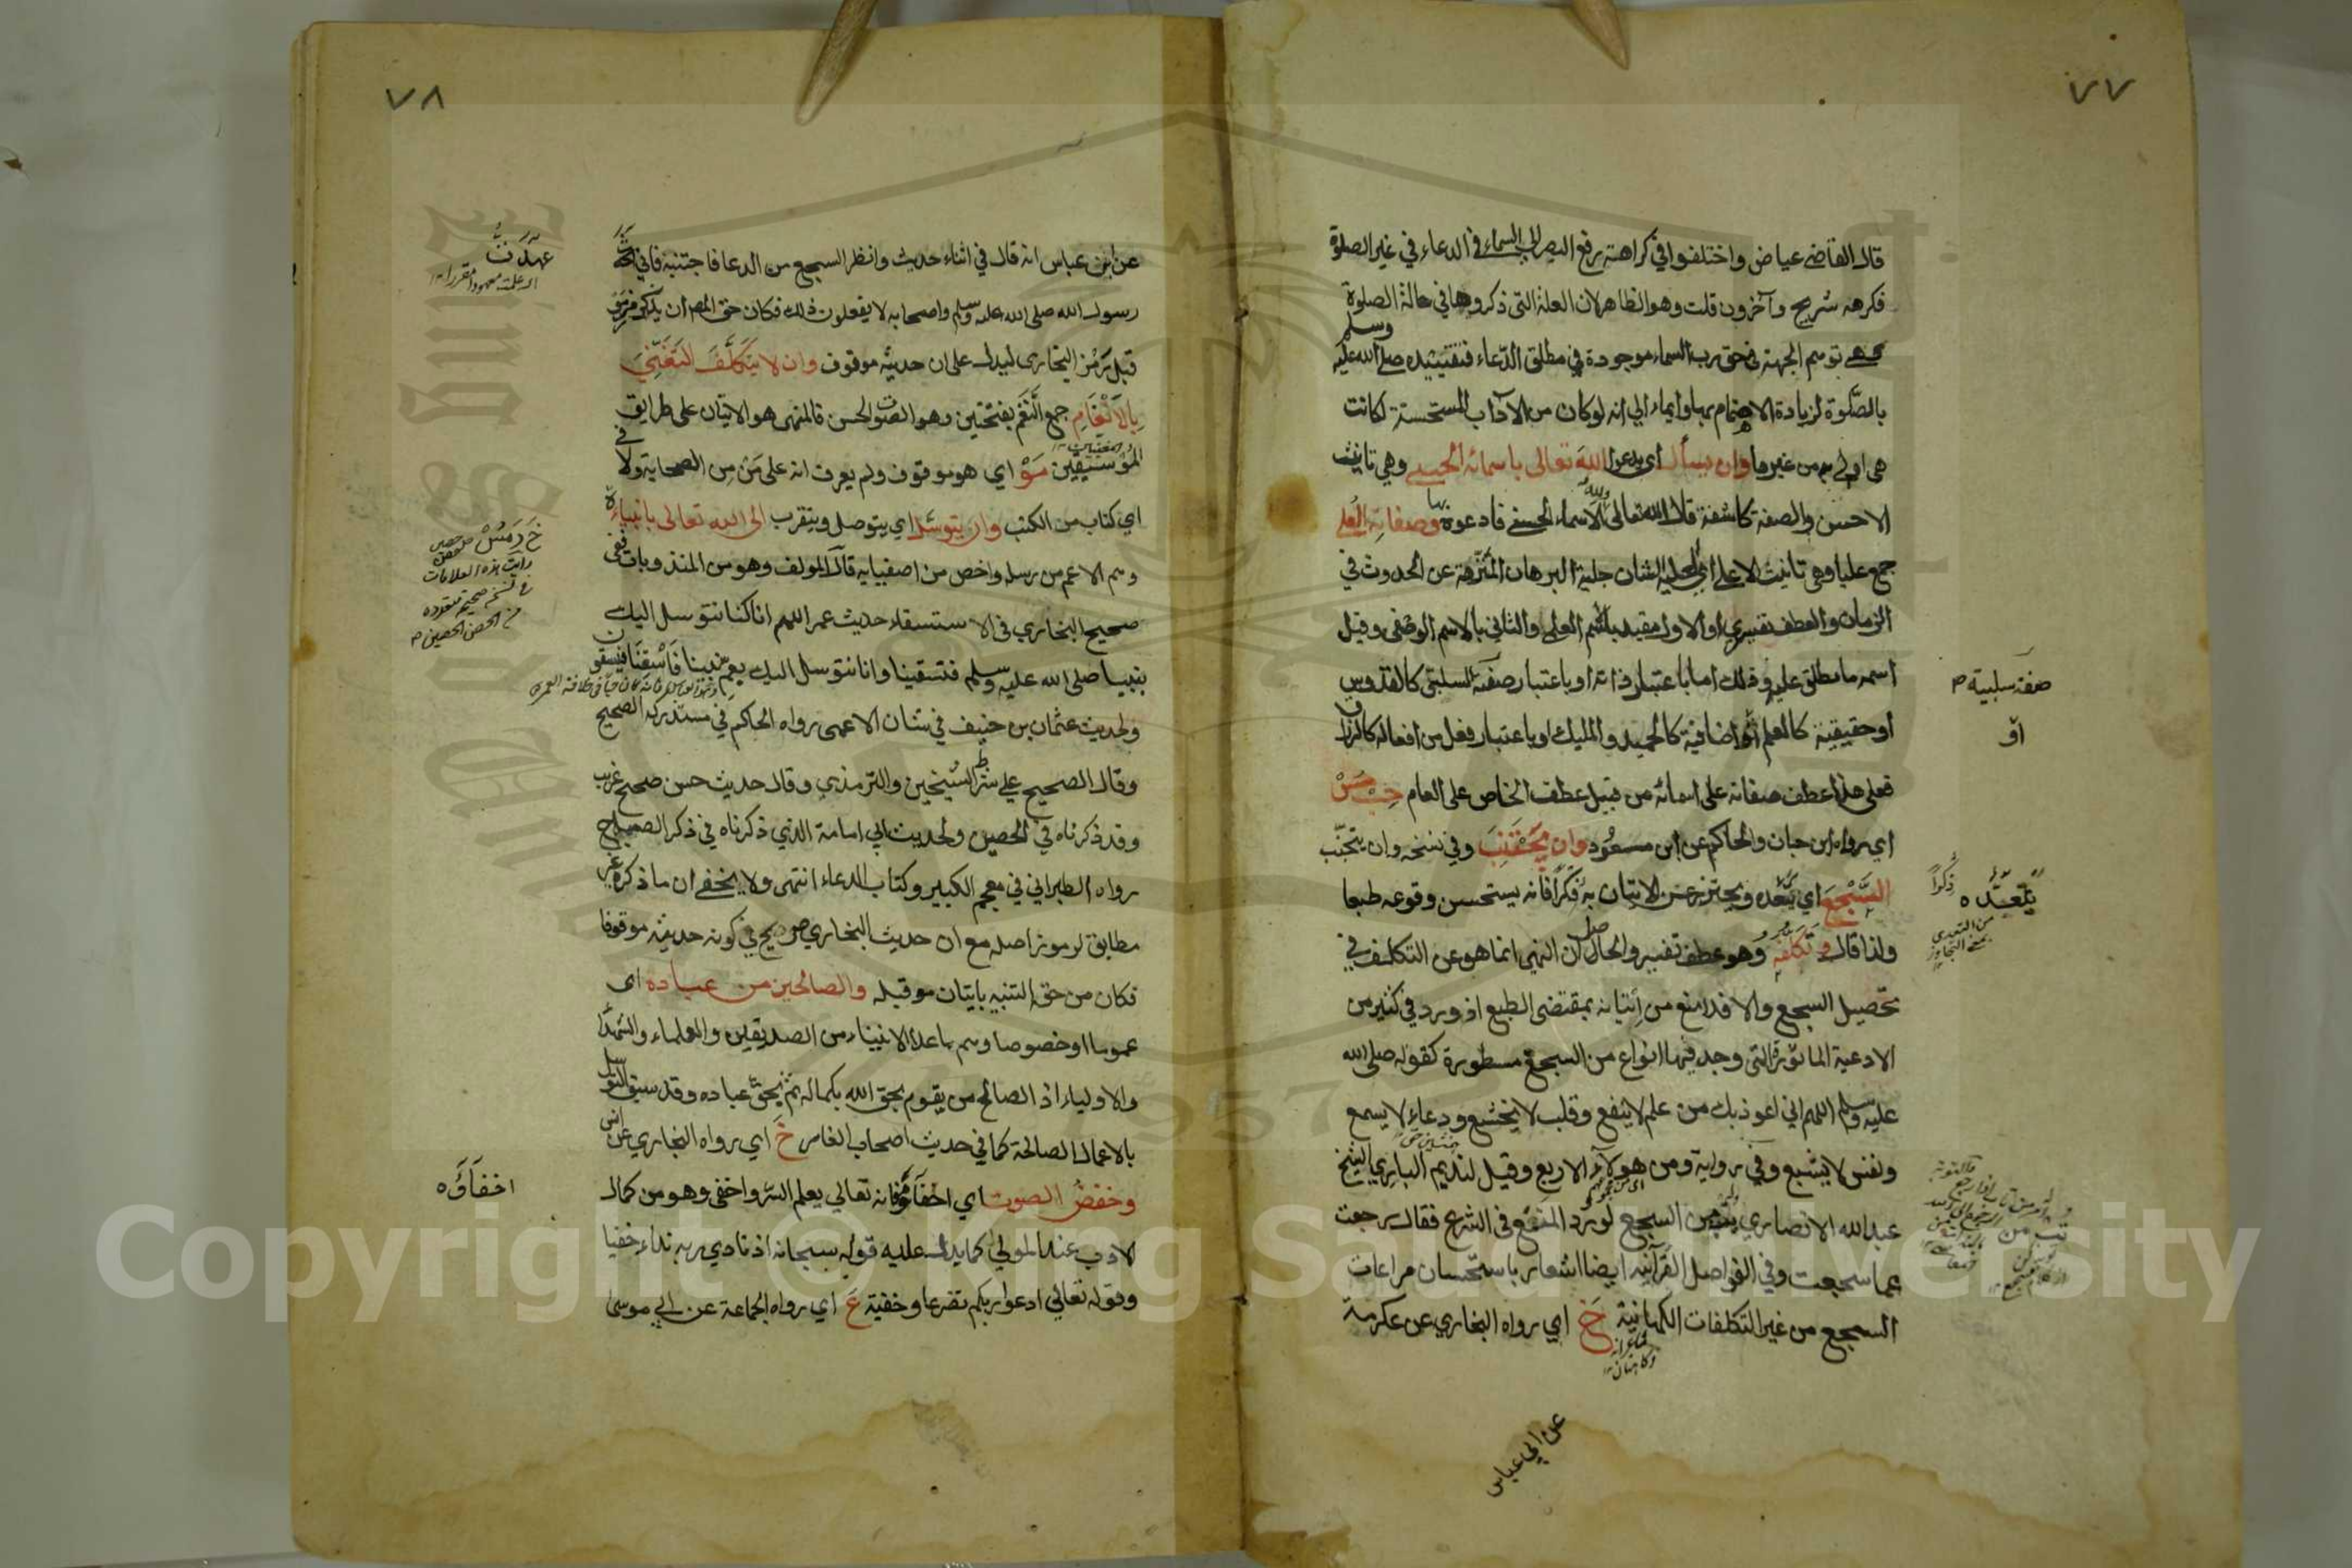 ٧٧
قال القاضي عياض واختلفوا في كراهة رفع البصر الى السماء في الدعاء في غير الصلوة
فكرهه شريح وآخرون قلت وهو الظاهر لان العلة التى ذكروها في حالة الصلوة
هي توهم الجهة في حق رب السماء موجودة في مطلق الدعاء فتقييده صلى الله عليه وسلم
بالصلوة لزيادة الاهتمام بها وايماء الى انه لو كان من الآداب المستحسنة لكانت
هى اولى به من غيرها وان يسأل اى يدعو الله تعالى باسمائه الحسنى وهي تانيث
الاحسن والصفة كاشفة قال الله تعالى ولله الاسماء الحسنى فادعوه بها وصفاته العلى
جمع عليا وهى تانيث الاعلى اى الجلية الشان جلية البرهان المنزهة عن الحدوث في
الزمان والعطف تفسيري او الاول مقيد بالاسم العلمي والثاني بالاسم الوصفى وقيل
اسمه ما يطلق عليه وذلك اما باعتبار ذاته او باعتبار صفة السلبية كالقدوس
او حقيقية كالعليم او اضافية كالحميد والمليك او باعتبار فعل من افعاله كالرزاق
فعلى هذا عطف صفاته على اسمائه من قبيل عطف الخاص على العام حب مس
اي رواه ابن حبان والحاكم عن ابن مسعود وان يجتنب وفي نسخه وان يتجنّب
السَّجْعَ اي يبعده ويحترز عن الاتيان به فكرا فانه يستحسن وقوعه طبعا
ولذا قال وتكلفه وهو عطف تفسير والحاصل ان النهى انما هو عن التكلف في
تحصيل السجع والا فلا منع من اتيانه بمقتضى الطبع اذ ورد في كثير من
الادعية الماثورة التى وجد فيها انواع من السجع مسطورة كقوله صلى الله
عليه وسلم اللهم اني اعوذ بك من علم لا ينفع وقلب لا يخشع ودعاء لا يسمع
ونفس لا يشبع وفي رواية ومن هؤلاء الاربع وقيل لنديم الباري الشيخ
عبد الله الانصاري السجع لورد المنع في الشرع فقال رجعت
عما سجعت وفي الفواصل القرآنيه ايضا اشعار باستحسان مراعات
السجع من غير التكلفات الكهانية خ اي رواه البخاري عن عكرمة
صفة سلبية
او
يتعبده
عن ابي عباس
٧٨
عن ابن عباس انه قال في اثناء حديث وانظر السجع من الدعا فاجتنبه فاني
رسول الله صلى الله عليه وسلم واصحابه لا يفعلون ذلك فكان حق المص ان يذكر
قبل رمز البخاري ليدل على ان حديثه موقوف وان لا يتكلف التغني
بالانغام جمع النغم بفتحتين وهو الصوت الحسن فالمنهى هو الاتيان على طرايق
الموسيقيين مو اي هو موقوف ولم يعرف انه على من من الصحابة ولا في
اي كتاب من الكتب وان يتوسل اي يتوصل ويتقرب الى الله تعالى بانبيائه
وهم الاعم من رسله واخص من اصفيايه قال المولف وهو من المندوبات ففى
صحيح البخاري في الاستسقاء حديث عمر اللهم انا كنا نتوسل اليك
بنبينا صلى الله عليه وسلم فتسقينا وانا نتوسل اليك بعم نبينا فاسقنا فيسقون
ولحديث عثمان بن حنيف في شان الاعمى رواه الحاكم في مستدركه الصحيح
وقال الصحيح علي شرط الشيخين والترمذي وقال حديث حسن صحيح غريب
وقد ذكرناه في الحصين ولحديث ابي امامة الذي ذكرناه في ذكر الصباح
رواه الطبراني في معجم الكبير وكتاب الدعاء انتهى ولا يخفى ان ما ذكره غير
مطابق لرموز اصله مع ان حديث البخاري صريح في كونه حديثه موقوفا
فكان من حق التنبيه باتيان مو قبله والصالحين من عباده اى
عموما او خصوصا وهم ماعدا الانبياء من الصديقين والعلماء والشهداء
والاولياء اذ الصالح من يقوم بحق الله بكماله ثم بحق عباده وقد سبق التوسل
بالاعمال الصالحة كما في حديث اصحاب الغار خ اي رواه البخاري عن انس
وخفض الصوت اي اخفاؤه فانه تعالي يعلم السر واخفى وهو من كمال
الادب عند المولى كما يدل عليه قوله سبحانه اذ نادى ربه نداء خفيا
وقوله تعالى ادعوا ربكم تضرعا وخفية ع اي رواه الجماعة عن ابي موسى
عهدت
اخفاؤه
Copyright © King Saud University
1957